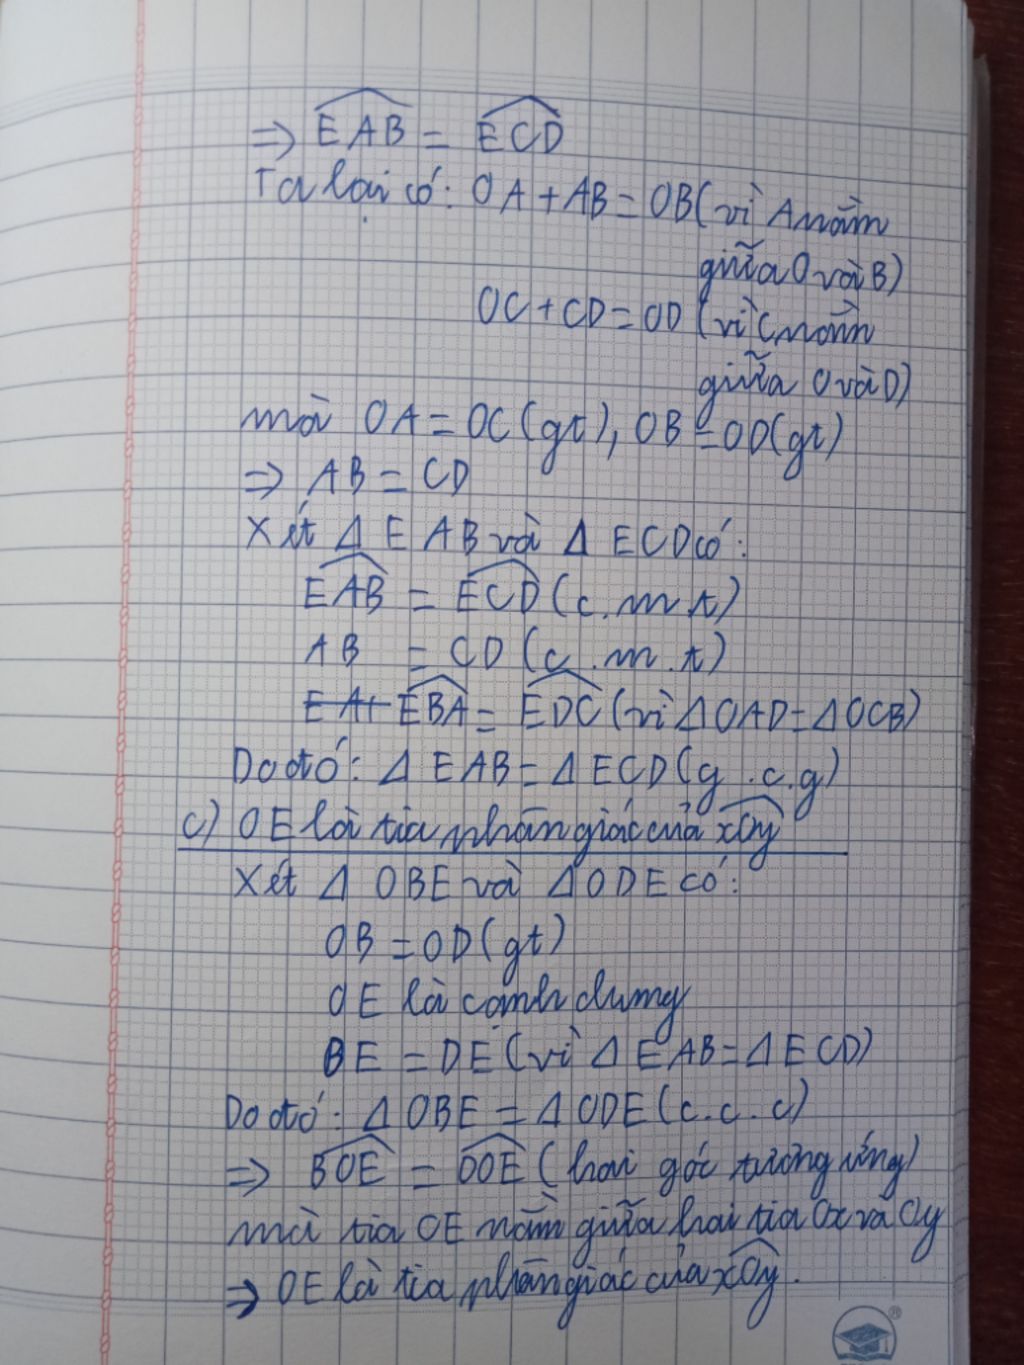 ⇒ \widehat{EAB} = \widehat{ECD}
Ta lại có: OA + AB = OB (vì A nằm
giữa O và B)
OC + CD = OD (vì C nằm
giữa O và D)
mà OA = OC (gt), OB = OD (gt)
⇒ AB = CD
Xét Δ EAB và Δ ECD có:
\widehat{EAB} = \widehat{ECD} (c.m.t)
AB = CD (c.m.t)
\widehat{EBA} = \widehat{EDC} (vì ΔOAD = ΔOCB)
Do đó: Δ EAB = Δ ECD (g.c.g)
c) OE là tia phân giác của \widehat{xOy}
Xét Δ OBE và Δ ODE có:
OB = OD (gt)
OE là cạnh chung
BE = DE (vì Δ EAB = Δ ECD)
Do đó: Δ OBE = Δ ODE (c.c.c)
⇒ \widehat{BOE} = \widehat{DOE} (hai góc tương ứng)
mà tia OE nằm giữa hai tia Ox và Oy
⇒ OE là tia phân giác của \widehat{xOy}.
®